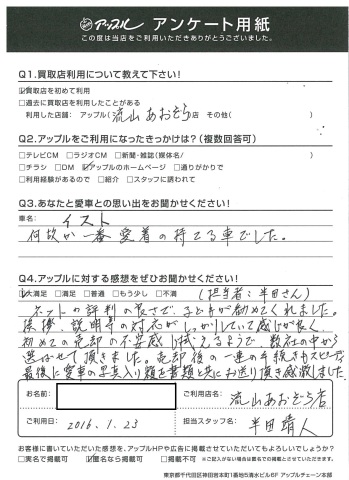 アップル アンケート用紙
この度は当店をご利用いただきありがとうございました。
Q1.買取店利用について教えて下さい!
☑買取店を初めて利用
□過去に買取店を利用したことがある
利用した店舗:( 流山あおぞら店 その他( )
Q2.アップルをご利用になったきっかけは?(複数回答可)
□テレビCM □ラジオCM □新聞・雑誌(媒体名/ )
□チラシ □DM ☑アップルのホームページ □通りがかりで
□利用経験があるので □紹介 □スタッフに誘われて
Q3.あなたと愛車との思い出をお聞かせください!
車名: イスト
何故か一番愛着の持てる車でした。
Q4.アップルに対する感想をぜひお聞かせください!
☑大満足 □満足 □普通 □もう少し □不満 (担当者:半田さん)
ネットの評判の良さで、子どもが勧めてくれました。
接客、説明等の対応がしっかりしていて感じが良く、
初めての売却の不安感も拭えるようで、数社の中から
選ばせて頂きました。売却後の一連の手続きもスピーディで
最後に愛車の写真入り額を書類と共にお送り頂き感激しました。
お名前:
ご利用店名: 流山あおぞら店
ご利用日: 2016.1.23
担当スタッフ名: 半田靖人
お客様に書いていただいた感想を、アップルHPや広告に掲載させていただいてもよろしいでしょうか?
□実名で掲載可 ☑匿名なら掲載可 □掲載不可 ※ご記入がない場合は匿名での掲載とさせていただきます。
東京都千代田区神田岩本町1番地5清水ビル6F アップルチェーン本部